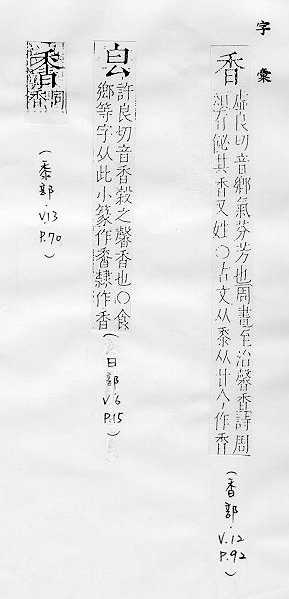 字彙
香
虛良切音鄉氣芬芳也周書至治馨香詩周
頌有飶其香又姓○古文从黍从甘今作香
(香部.V.12 P.92)
許良切音香穀之馨香也○食
鄉等字从此小篆作香隸作香
(日部 V.6 P.15)
同
香
(黍部.V.13 P.70)